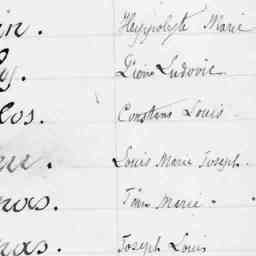 in. Hyppolyte Marie
y. Léon Ludovic
los. Constans Louis
Louis Marie Joseph
nas. Marie
nas. Joseph Louis